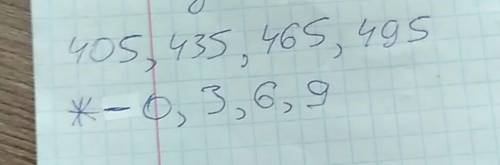 405, 435, 465, 495
* - 0, 3, 6, 9